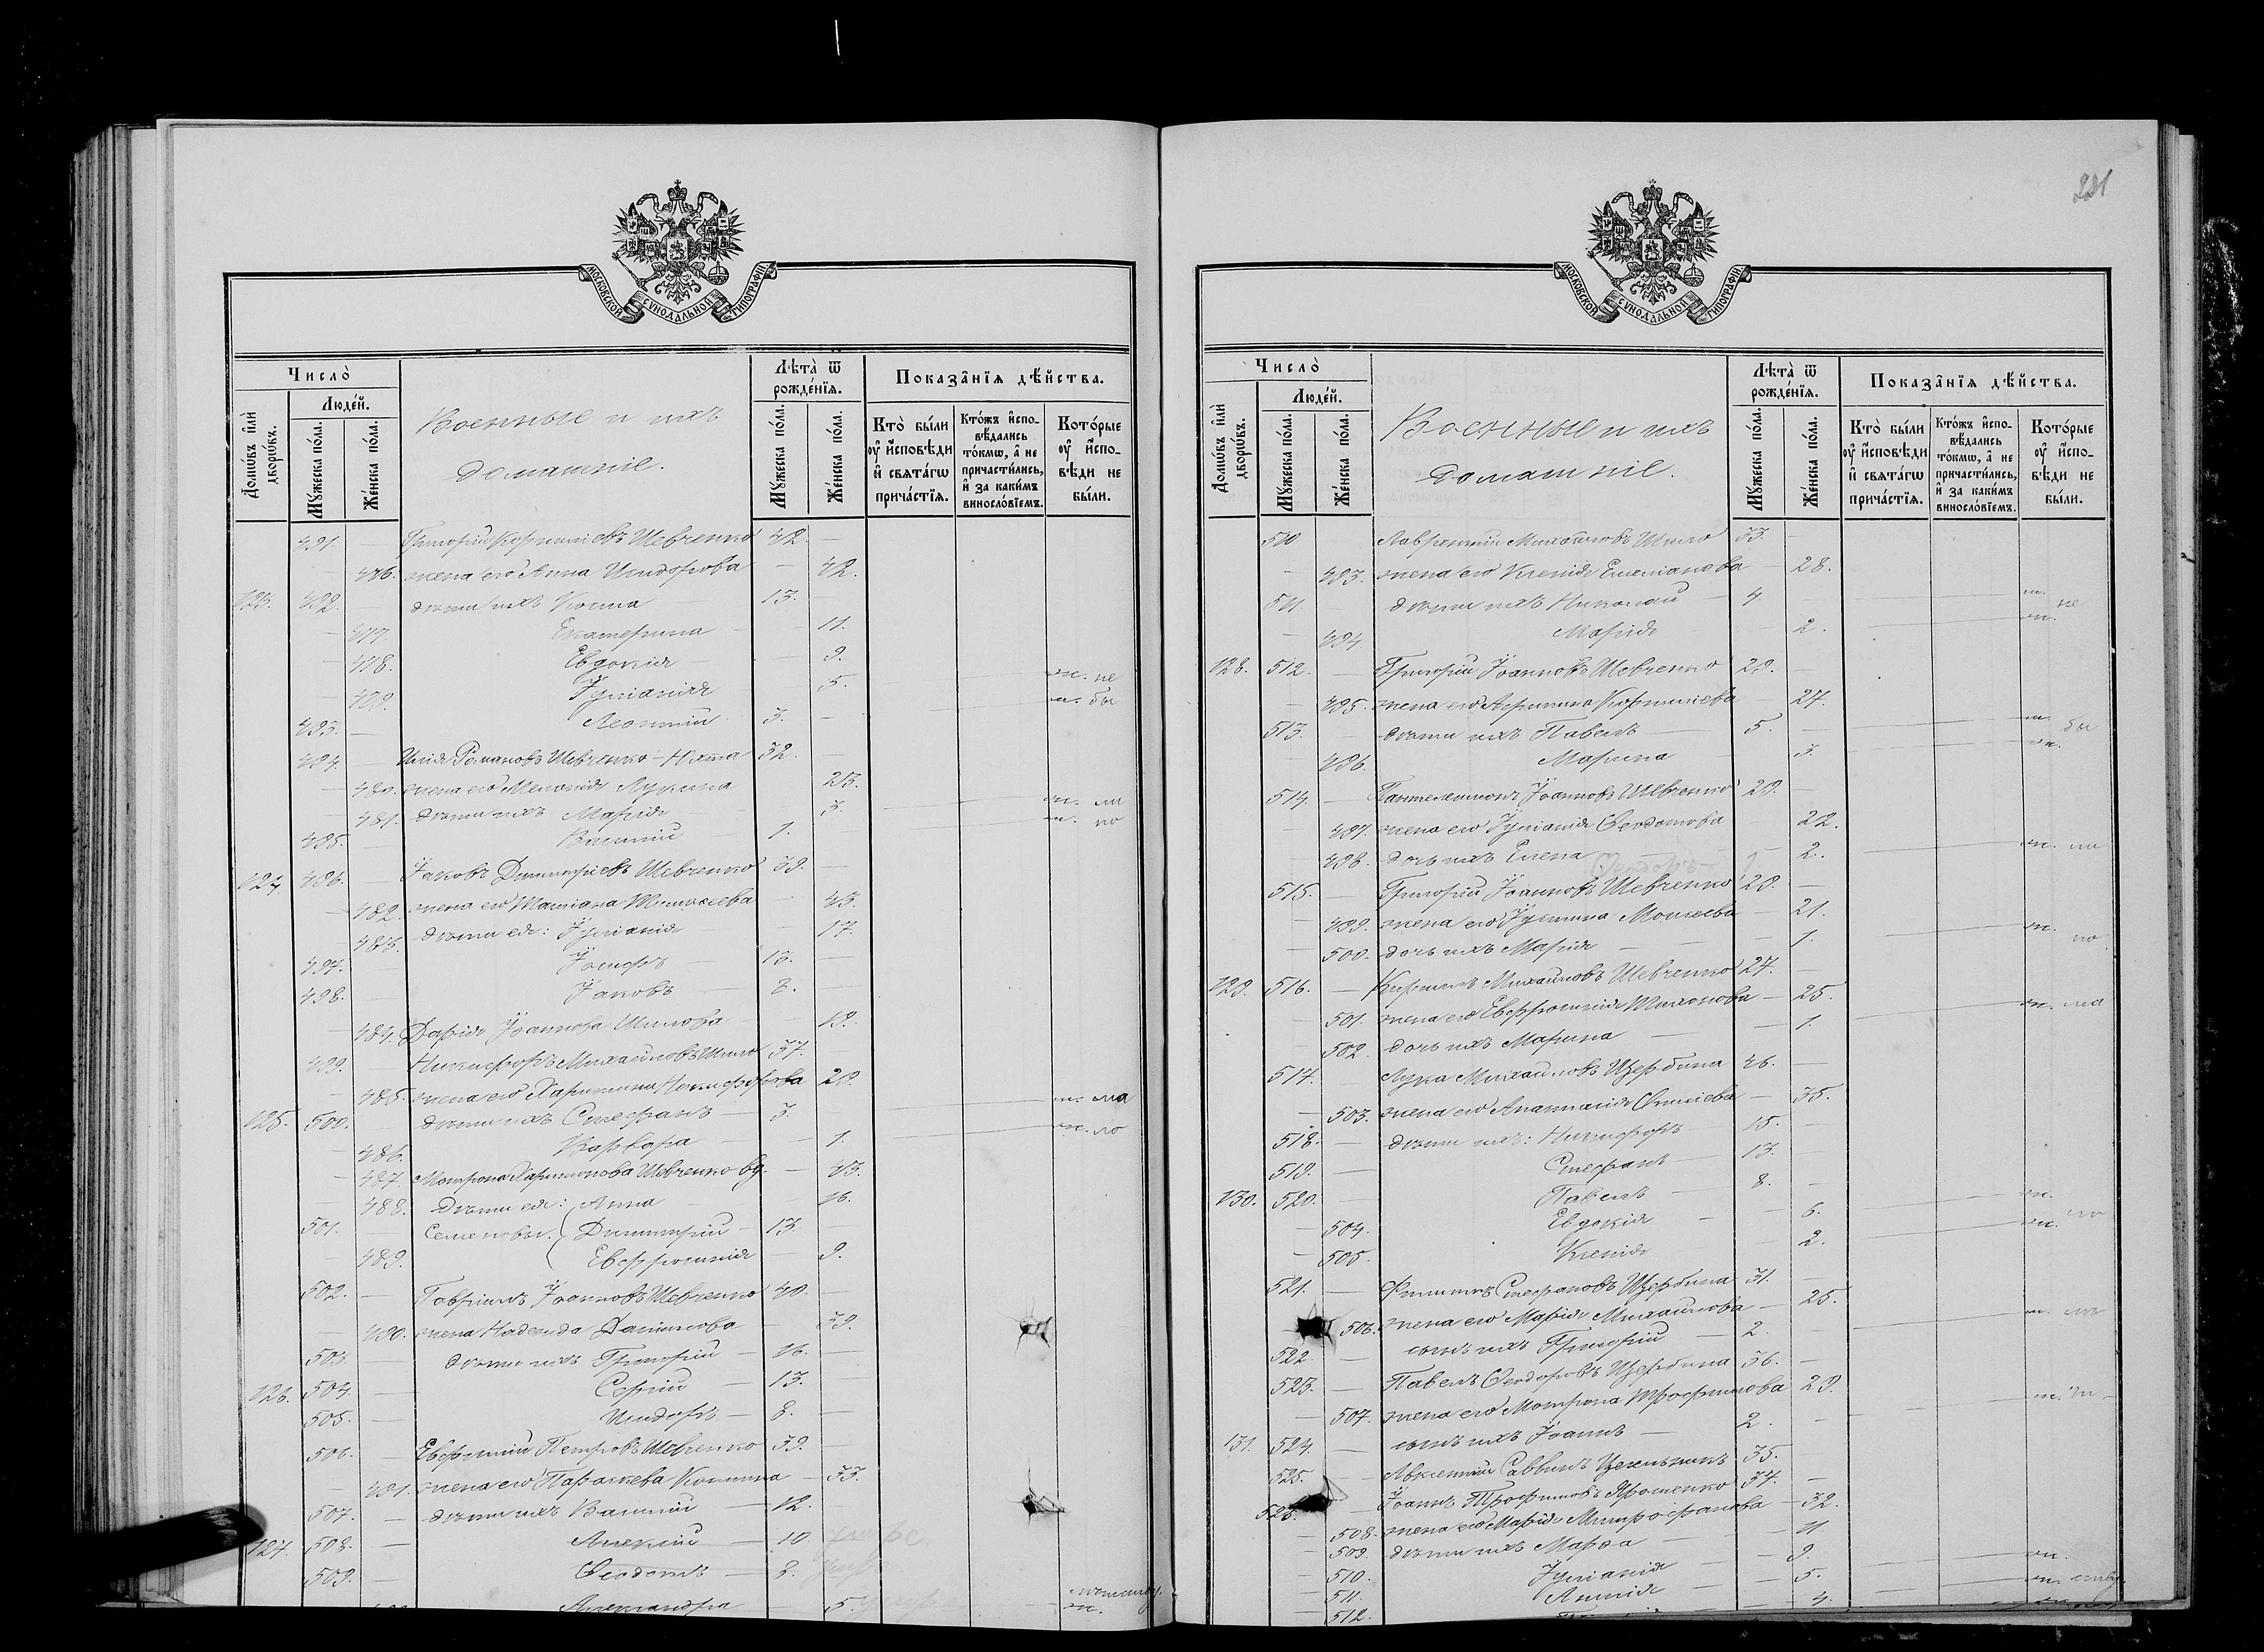 МОСКОВСКОЙ СѴНОДАЛЬНОЙ ТИПОГРАФІИ
Число̀
Людей.
Домѡ́въ и҆лѝ дворѡ́въ.
Мꙋ́жеска по́ла.
Же́нска по́ла.
Военные и ихъ
домашніе.
Лѣта̀ ѿ рожде́нїѧ.
Мꙋ́жеска по́ла.
Же́нска по́ла.
Показа̑нїѧ дѣ́йства.
Кто̀ бы́ли оу҆ и҆сповѣ́ди и҆ свѧта́гѡ прича́стїѧ.
Кто́жъ и҆спо-вѣ́дались то́кмѡ, а҆ не причасти́лись, и҆ за каки́мъ винносло́вїемъ.
Кото́рые оу҆ и҆спо-вѣ́ди не бы́ли.
491. — Григорій Корниліевъ Шевченко 42 —
— 476. жена его Анна Исидорова — 42.
123. 492. — дѣти ихъ Косма 13. —
— 477. Екатерина — 11.
— 478. Евдокія — 9.
— 479. Іуліанія — 5. м. не
493. — Леонтій 3. — м. бы
494. — Илія Романовъ Шевченко 32. —
— 480. жена его Меланія Лукина 25.
— 481. дѣти ихъ Марія — 3. м. ли
495. — Василій — 1. м. по
124. 496. — Іаковъ Димитріевъ Шевченко 39. —
— 482. жена его Татіана Тимоѳеева — 43.
— 483. дѣти ея: Іуліанія — 17.
497. — Іосифъ — 13. —
498. — Іаковъ — 8. —
— 484. Дарія Іоаннова Шилова — 19.
499. — Никифоръ Михайловъ Шило 37.
— 485. жена его Харитина Никифорова 29.
125. 500. — дѣти ихъ Стефанъ — 3. м. ма
— 486. Варвара — 1. м. ло
— 487. Матрона Харитонова Шевченко вд. — 43.
— 488. дѣти ея: Анна — 16.
501. — Семеновы: Димитрій — 13. —
— 489. Евфросинія — 9.
502. — Гавріилъ Іоанновъ Шевченко 40. —
— 490. жена Надежда Даніилова — 39.
503. — дѣти ихъ Григорій — 16. —
126. 504. — Сергій — 13. —
505. — Исидоръ — 8. —
506. — Евфимій Петровъ Шевченко 39. —
— 491. жена его Параскева Космина — 33.
507. — дѣти ихъ Василій — 12.
127. 508. — Алексій — 10
509. — Ѳеодотъ — 8.
Александра — 5. м.
221
МОСКОВСКОЙ СѴНОДАЛЬНОЙ ТИПОГРАФІИ
Число̀
Людей.
Домѡ́въ и҆лѝ дворѡ́въ.
Мꙋ́жеска по́ла.
Же́нска по́ла.
Военные и ихъ
домашніе.
Лѣта̀ ѿ рожде́нїѧ.
Мꙋ́жеска по́ла.
Же́нска по́ла.
Показа̑нїѧ дѣ́йства.
Кто̀ бы́ли оу҆ и҆сповѣ́ди и҆ свѧта́гѡ прича́стїѧ.
Кто́жъ и҆спо-вѣ́дались то́кмѡ, а҆ не причасти́лись, и҆ за каки́мъ винносло́вїемъ.
Кото́рые оу҆ и҆спо-вѣ́ди не бы́ли.
510 Лаврентій Михайловъ Шило 33. —
— 493. жена его Ксенія Емеліанова — 28.
511 дѣти ихъ Николай — 4. м. не
— 494. Марія — 2. м.
128. 512. — Григорій Іоанновъ Шевченко 29. —
— 495. жена его Агрипина Корниліева 27.
513. — дѣти ихъ Павелъ — 5. — м. бы
— 496. Марина — 3. м.
514. — Пантелеимонъ Іоанновъ Шевченко 29. —
— 497. жена его Іуліанія Ѳеодотова 22.
— 498. дочь ихъ Елена — 2. м. ли
515. — Григорій Іоанновъ Шевченко 29. —
— 499. жена его Іустина Моисеева — 21.
— 500. дочь ихъ Марія — 1. м. по
129. 516. — Кириллъ Михайловъ Шевченко 27. —
— 501. жена его Евфросинія Тихонова — 25.
— 502. дочь ихъ Марина — 1. м. ма
517. Лука Михайловъ Щербина 46. —
— 503. жена его Анастасія — 35.
518. — дѣти ихъ: Никифоръ — 15. —
519. — Стефанъ — 13. —
130. 520. — Павелъ — 8. —
— 504. Евдокія — 6. м. ло
— 505. Ксенія — 2. м.
521. — Филиппъ Стефановъ Щербина 31. —
506. жена его Марія Михайлова — 25.
522. — сынъ ихъ Григорій — 2. м.
523. — Павелъ Ѳеодоровъ Щербина 36. —
— 507. жена его Матрона Трофимова 29.
131. 524. — сынъ ихъ Іоаннъ — 2. — м.
525. — Авксентій Саввинъ 35. —
526. — Іоаннъ Трофимовъ Ярошенко 37. —
— 508. жена его Марія Митрофанова — 32.
— 509. дѣти ихъ Марѳа — 11
— 510. Іуліанія — 9. м.
— 511. — 5. м.
— 512. — 4.